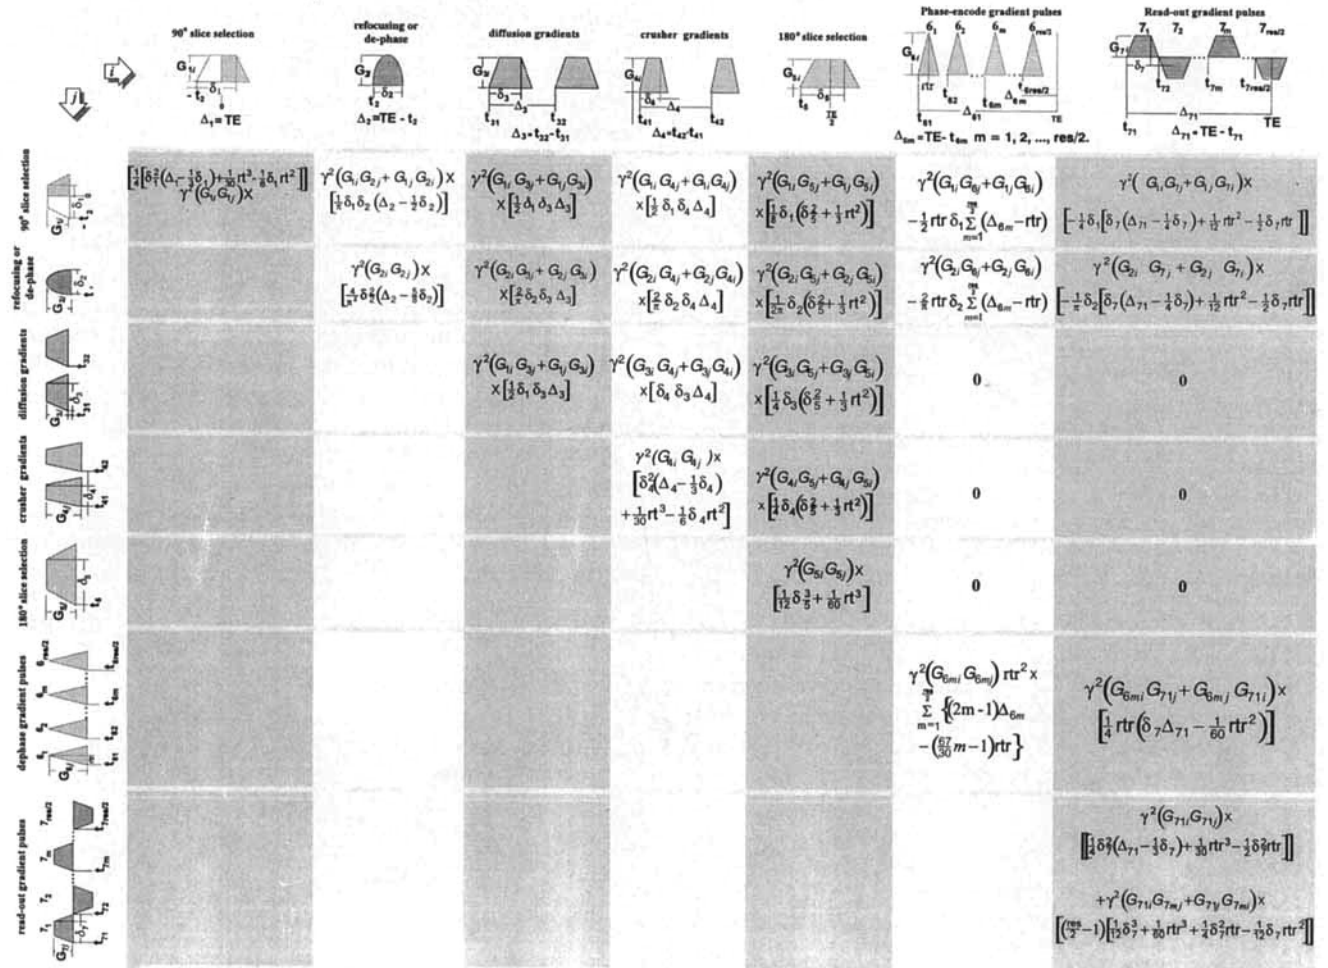 90° slice selection
G1i
- t2 δ1 0
Δ1 = TE
refocusing or
de-phase
G2i
t2 δ2
Δ2=TE - t2
diffusion gradients
G3i
δ3 Δ3
t31 t32
Δ3=t32-t31
crusher gradients
δ4 Δ4
t41 t42
Δ4=t42-t41
180° slice selection
G5i
t5 δ5 TE/2
Phase-encode gradient pulses
61 62 6m 6res/2
G6i
rtr t62 t6m t6res/2
Δ6m
t61 Δ61 TE
Δ6m=TE- t6m m = 1, 2, ..., res/2.
Read-out gradient pulses
71 72 7m 7res/2
G7i
δ7 t72 t7m t7res/2
Δ71
t71 TE
Δ71=TE - t71
i
j
90° slice selection
[1/4[δ1²(Δ1-1/3δ1)+1/30rt³-1/6δ1rt²]]
γ²(G1iG1j)×
γ²(G1iG2j+G1jG2i)×
[1/πδ1δ2(Δ2-1/2δ2)]
γ²(G1iG3j+G1jG3i)
×[1/2δ1δ3Δ3]
γ²(G1iG4j+G1iG4j)
×[1/2δ1δ4Δ4]
γ²(G1iG5j+G1jG5i)
×[1/8δ1(δ5²+1/3rt²)]
γ²(G1iG6j+G1jG6i)
-1/2rtrδ1Σm=1res/2(Δ6m-rtr)
γ²(G1iG7j+G1jG7i)×
[-1/4δ1[δ7(Δ71-1/4δ7)+1/12rtr²-1/2δ7rtr]]
refocusing or
de-phase
γ²(G2iG2j)×
[4/π²δ2²(Δ2-5/8δ2)]
γ²(G2iG3j+G2jG3i)
×[2/πδ2δ3Δ3]
γ²(G2iG4j+G2jG4i)
×[2/πδ2δ4Δ4]
γ²(G2iG5j+G2jG5i)
×[1/2πδ2(δ5²+1/3rt²)]
γ²(G2iG6j+G2jG6i)
-2/πrtrδ2Σm=1res/2(Δ6m-rtr)
γ²(G2iG7j+G2jG7i)×
[-1/πδ2[δ7(Δ71-1/4δ7)+1/12rtr²-1/2δ7rtr]]
diffusion gradients
γ²(G1iG3j+G1jG3i)
×[1/2δ1δ3Δ3]
γ²(G3iG4j+G3jG4i)
×[δ4δ3Δ4]
γ²(G3iG5j+G3jG5i)
×[1/4δ3(δ5²+1/3rt²)]
0
0
crusher gradients
γ²(G4iG4j)×
[δ4²(Δ4-1/3δ4)
+1/30rt³-1/6δ4rt²]
γ²(G4iG5j+G4jG5i)
×[1/4δ4(δ5²+1/3rt²)]
0
0
180° slice selection
γ²(G5iG5j)×
[1/12δ5³+1/60rt³]
0
0
dephase gradient pulses
γ²(G6miG6mj)rtr²×
Σm=1res/2{(2m-1)Δ6m
-(67/30m-1)rtr}
γ²(G6miG71j+G6mjG71i)×
[1/4rtr(δ7Δ71-1/60rtr²)]
read-out gradient pulses
γ²(G71iG71j)×
[[1/4δ7²(Δ71-1/3δ7)+1/30rtr³-1/2δ7²rtr]]
+γ²(G71iG7mj+G71jG7mi)×
[(res/2-1)[1/12δ7³+1/60rtr³+1/4δ7²rtr-1/12δ7rtr²]]